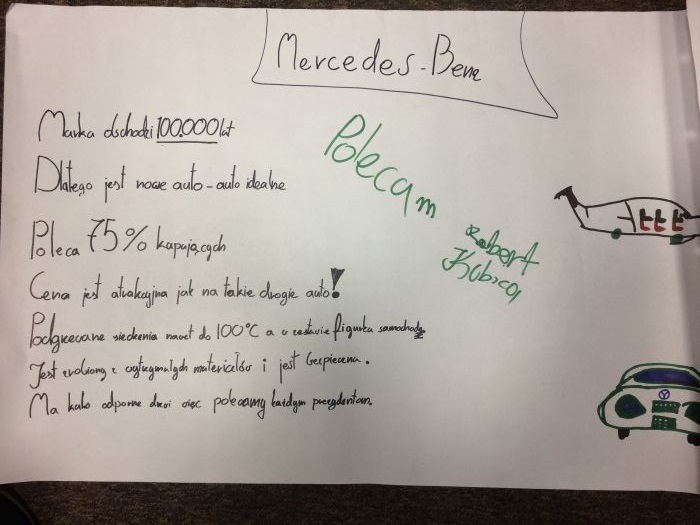 Mercedes-Benz
Marka obchodzi 100.000 lat
Polecam
Robert
Kubica
Dlatego jest nowe auto-auto idealne
Poleca 75% kupujących
Cena jest atrakcyjna jak na takie drogie auto!
Podgrzewane siedzenia nawet do 100°C a w zestawie figurka samochodu
Jest zrobiony z wytrzymałych materiałów i jest bezpieczna.
Ma kulo odporne drzwi więc polecamy każdym prezydentom.